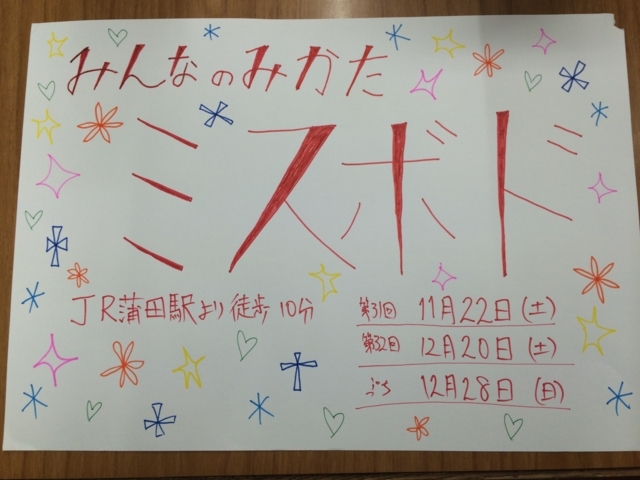 みんなのみかた
ミスボド
JR蒲田駅より徒歩10分
第31回 11月22日(土)
第32回 12月20日(土)
ぷち 12月28日(日)